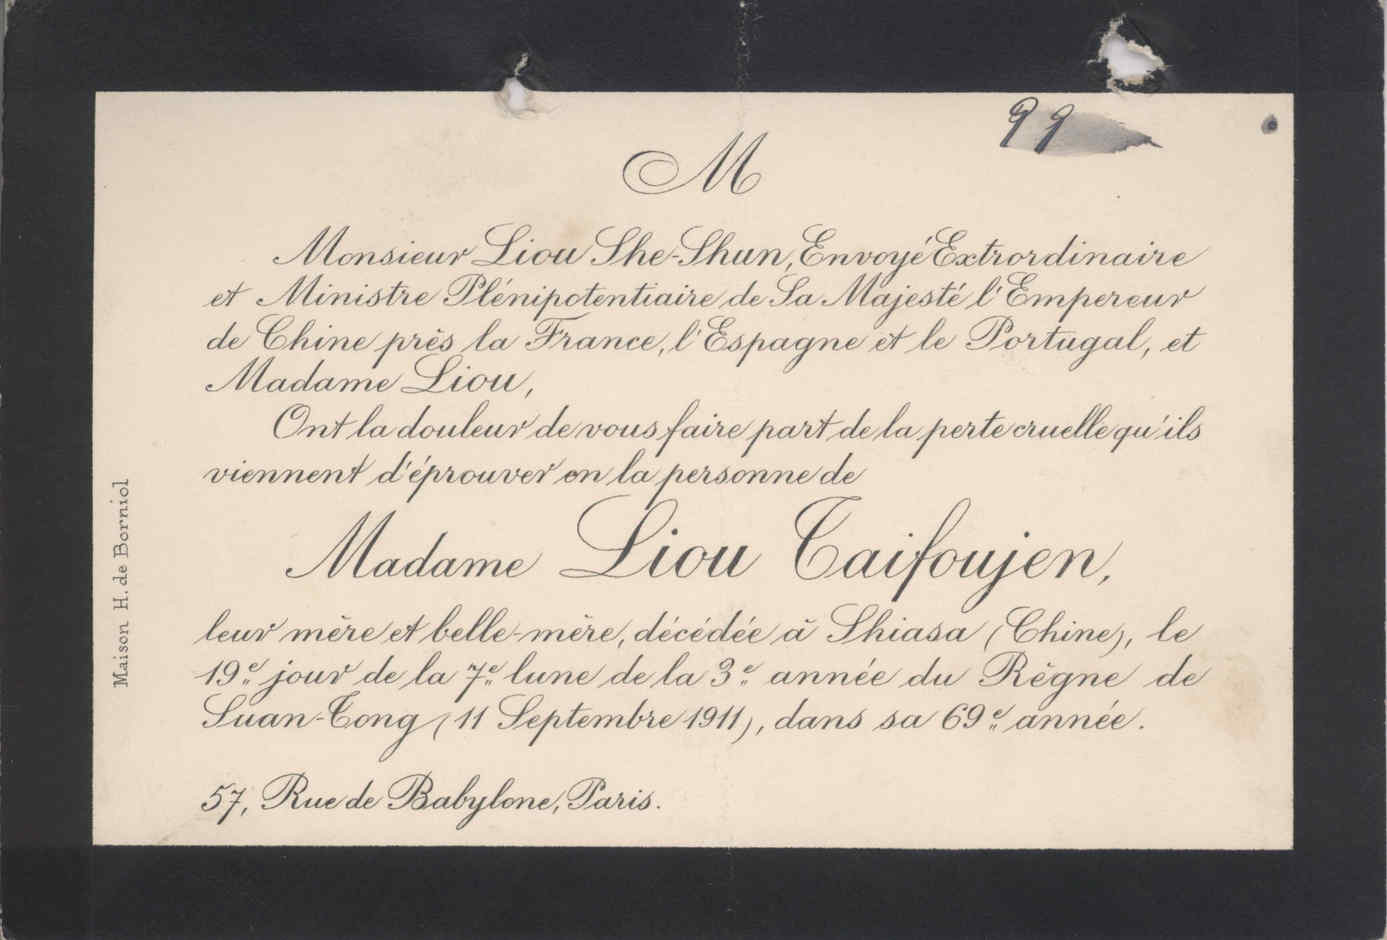 99
M
Monsieur Liou She-Shun, Envoyé Extrordinaire
et Ministre Plénipotentiaire de Sa Majesté l'Empereur
de Chine près la France, l'Espagne et le Portugal, et
Madame Liou,
Ont la douleur de vous faire part de la perte cruelle qu'ils
viennent d'éprouver en la personne de
Madame Liou Taifoujen,
leur mère et belle-mère, décédée à Shiasa (Chine), le
19e jour de la 7e lune de la 3e année du Règne de
Suan-Tong (11 Septembre 1911), dans sa 69e année.
57, Rue de Babylone, Paris.
Maison H. de Borniol